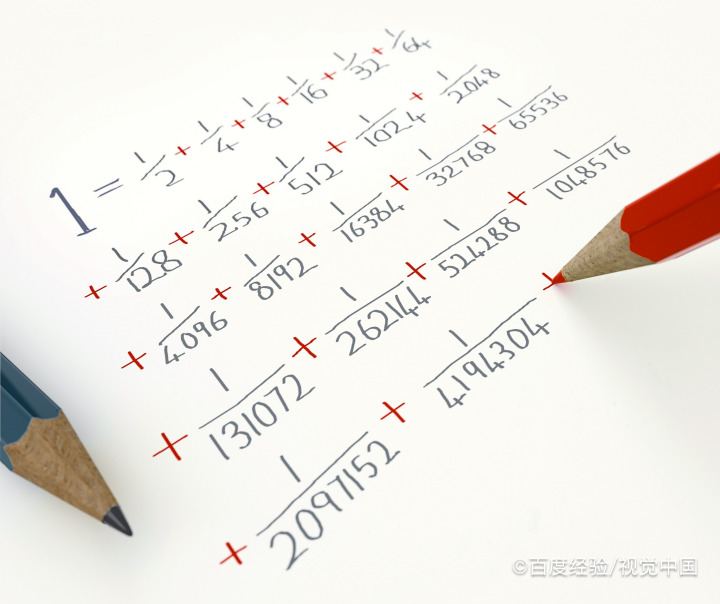 1 = 1/2 + 1/4 + 1/8 + 1/16 + 1/32 + 1/64
+ 1/128 + 1/256 + 1/512 + 1/1024 + 1/2048
+ 1/4096 + 1/8192 + 1/16384 + 1/32768 + 1/65536
+ 1/131072 + 1/262144 + 1/524288 + 1/1048576
+ 1/2097152 + 1/4194304 +
©百度经验/视觉中国